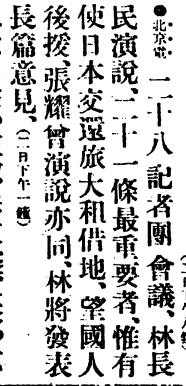 ●北京電 二十八記者團會議、林長
民演說、二十一條最重要者、惟有
使日本交還旅大租借地、望國人
後援、張耀曾演說亦同、林將發表
長篇意見、(一日下午一鐘)